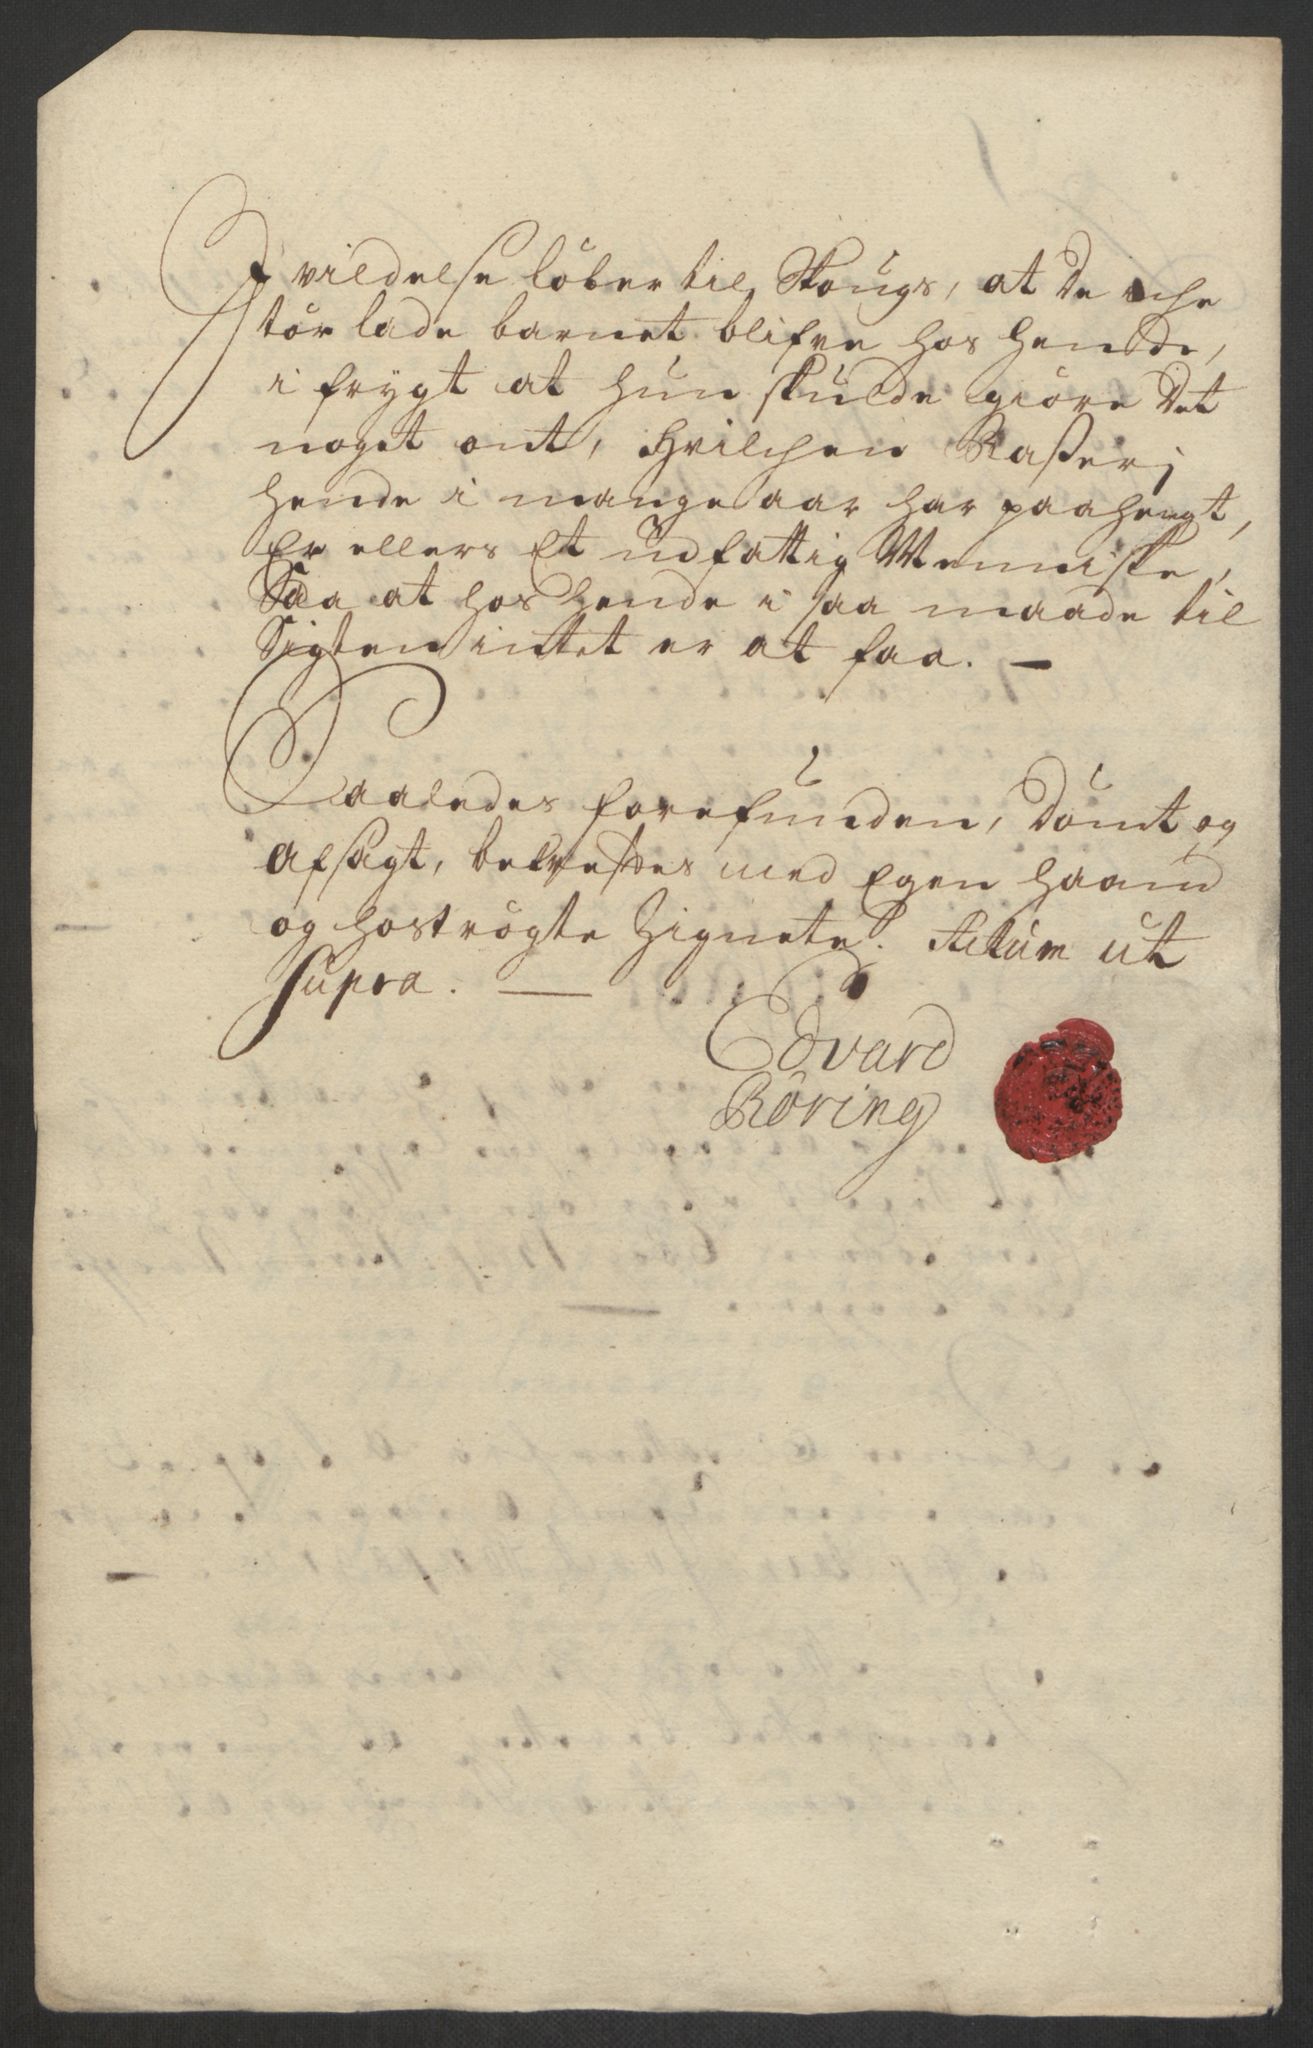 I vildelse löber til Skougs, at De iche
tör lade barnet blifve hos hende,
i frygt at hun skulde giöre Det
noget ont, hvilchen Raßeri
hende i mange aar har paahengt,
Er ellers Et udfattig Menniske,
Saa at hos hende i saa maade til
Sigten intet er at faa. —
Saaledes forefunden, Dömt og
afsagt, bekreftes med Egen haand
og hoströgte Zignete. Actum ut
supra. —
Edvard
Röring